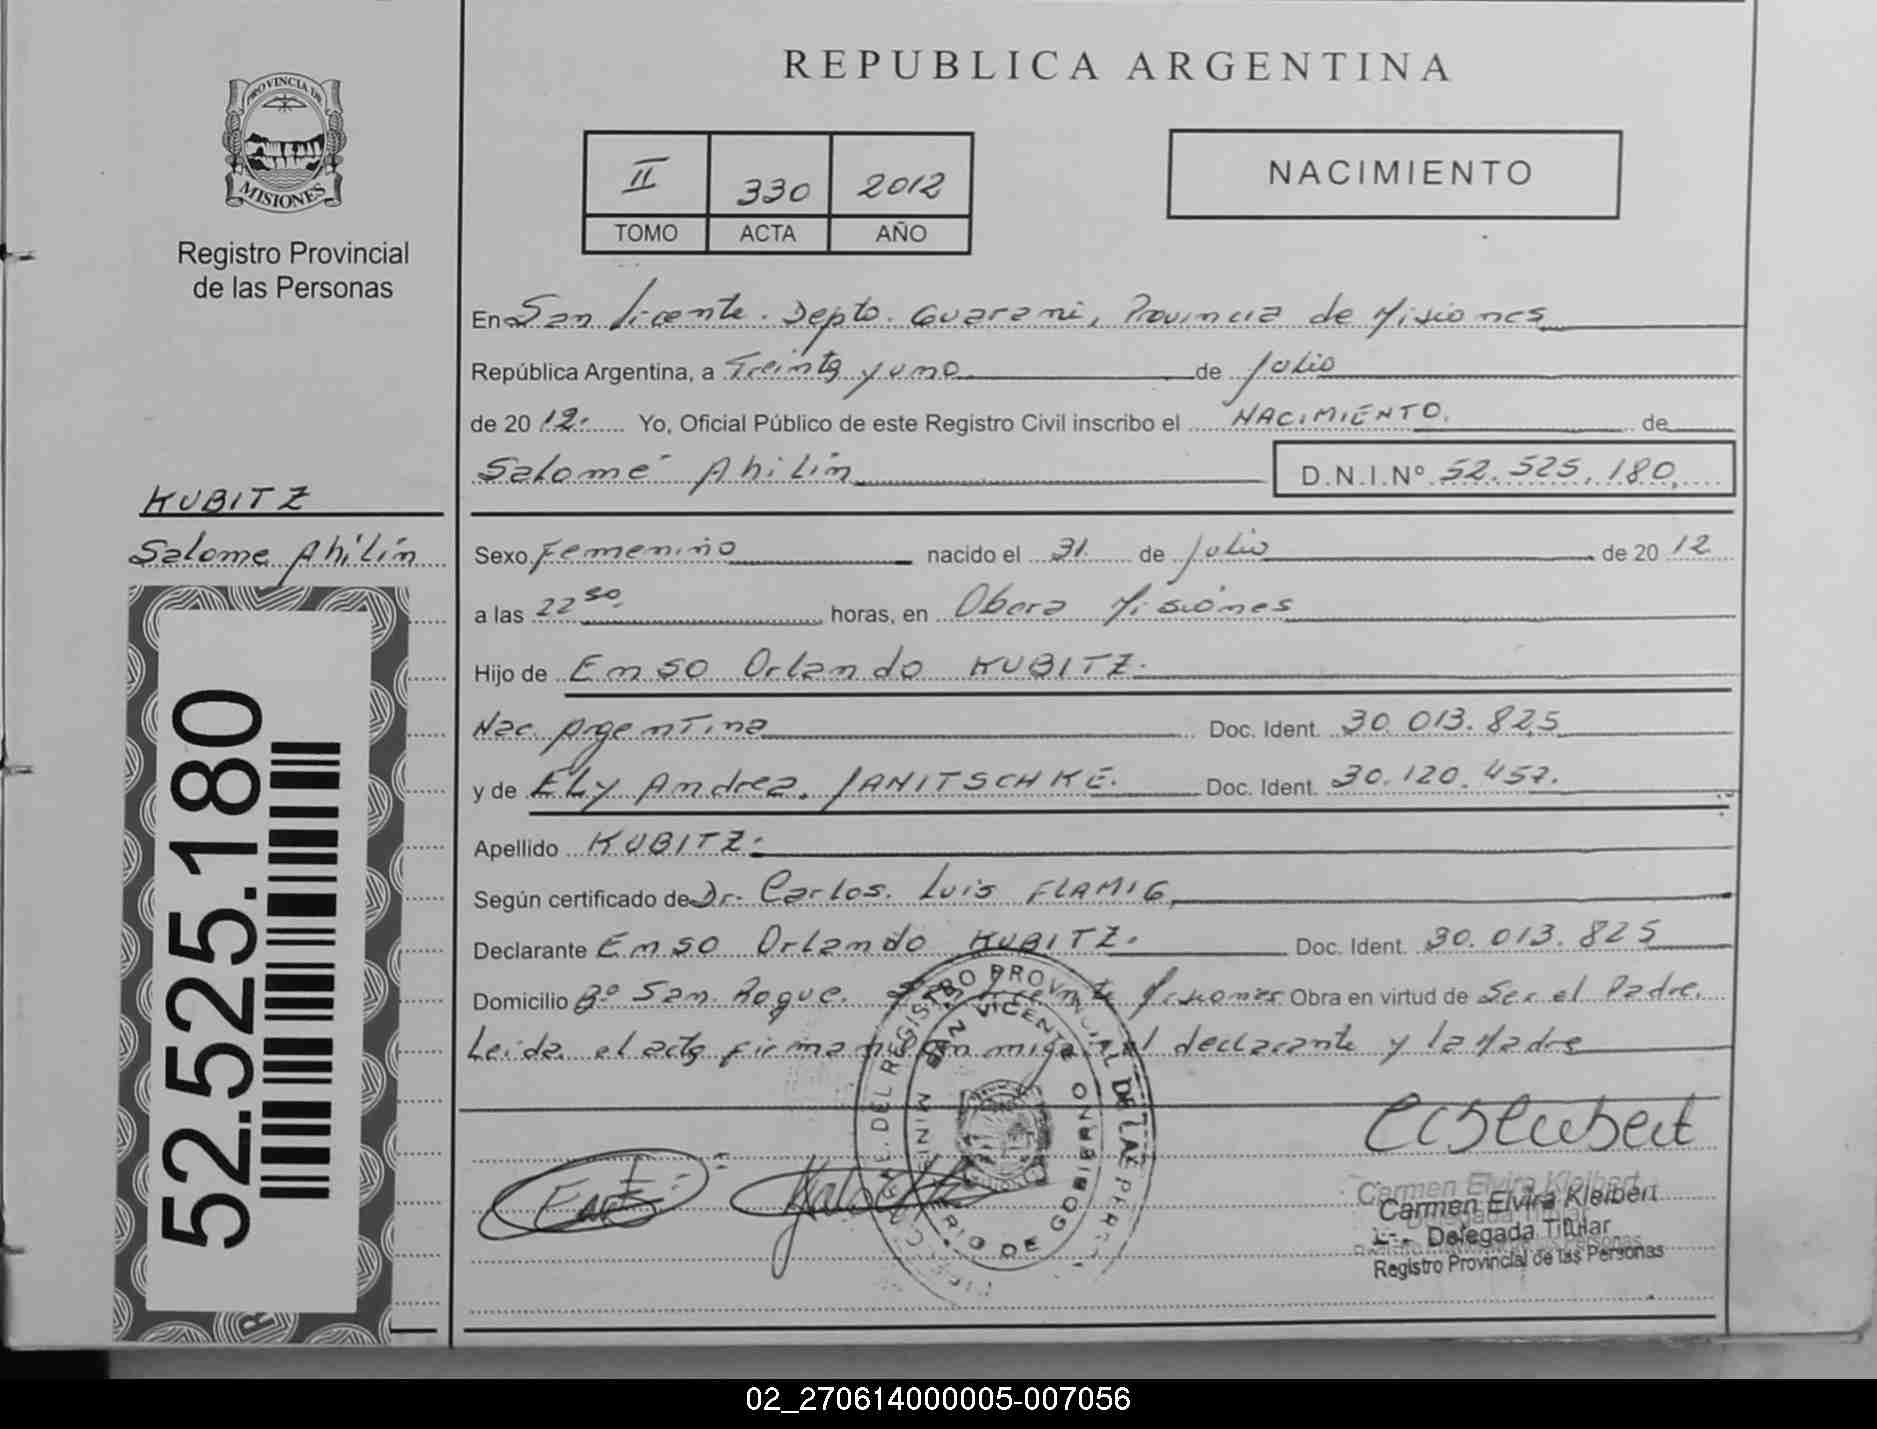 REPUBLICA ARGENTINA
PROVINCIA DE
MISIONES
Registro Provincial
de las Personas
II 330 2012
TOMO ACTA AÑO
NACIMIENTO
En San Vicente. Depto. Guarani, Provincia de Misiones
República Argentina, a Treinta y uno de Julio
de 2012. Yo, Oficial Público de este Registro Civil inscribo el NACIMIENTO. de
Salomé Ahilín D.N.I.Nº 52.525.180.
KUBITZ
Salome Ahilín
52.525.180
Sexo Femenino nacido el 31 de Julio de 2012
a las 22 50 horas, en Obera Misiones
Hijo de Enso Orlando KUBITZ.
Nac. Argentina Doc. Ident. 30.013.825
y de Ely Andrea. JANITSCHKE. Doc. Ident. 30.120.457.
Apellido KUBITZ.
Según certificado de Dr. Carlos. Luis FLAMIG
Declarante Enso Orlando KUBITZ. Doc. Ident. 30.013.825
Domicilio Bº San Roque. San Vicente Misiones Obra en virtud de Ser el Padre.
Leída el acta firman conmigo el declarante y la Madre
REGISTRO PROVINCIAL DE LAS PERS
SAN VICENTE
MINISTERIO DE GOBIERNO
Carmen Elvira Kleibert
Delegada Titular
Registro Provincial de las Personas
02_270614000005-007056